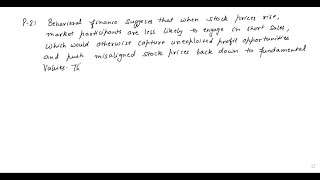 P-21 Behavioral finance suggests that when stock prices rise,
market participants are less likely to engage in short sales,
which would otherwise capture unexploited profit opportunities
and push misaligned stock prices back down to fundamental
values. Th